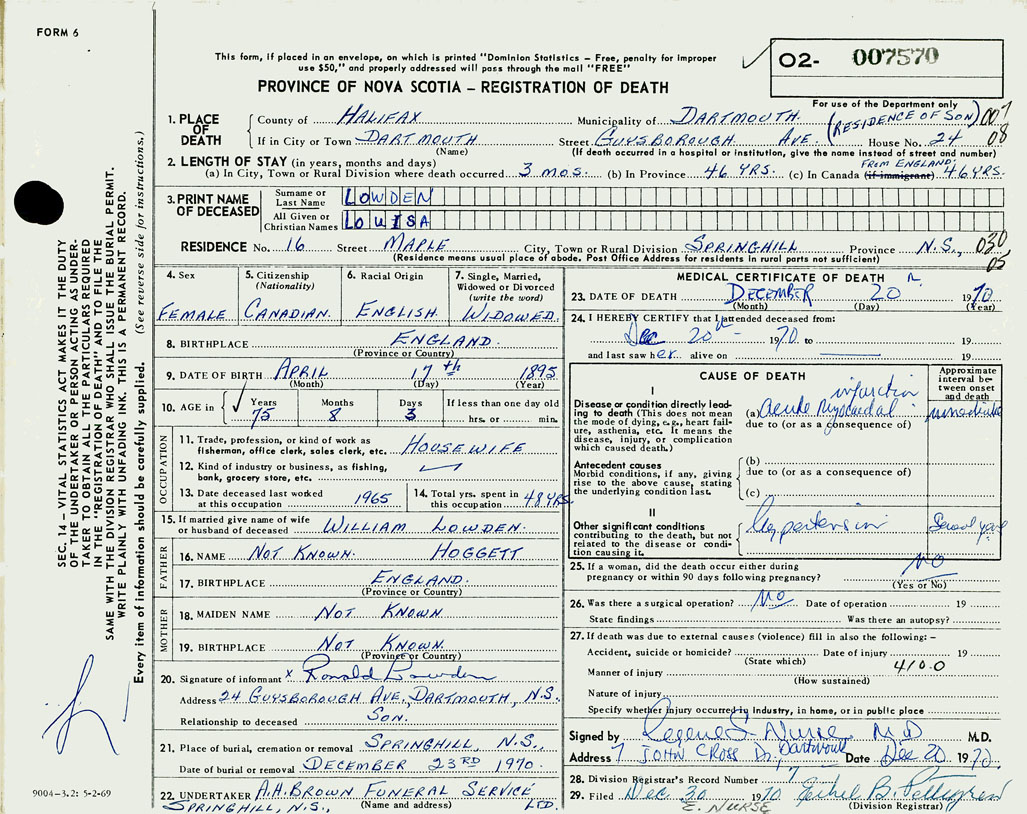 FORM 6
This form, if placed in an envelope, on which is printed "Dominion Statistics – Free, penalty for improper
use $50," and properly addressed will pass through the mail "FREE"
O2- 007570
For use of the Department only
PROVINCE OF NOVA SCOTIA – REGISTRATION OF DEATH
1. PLACE OF DEATH
County of HALIFAX Municipality of DARTMOUTH (RESIDENCE OF SON) 007
If in City or Town DARTMOUTH Street GUYSBOROUGH AVE. House No. 24 08
(Name) (If death occurred in a hospital or institution, give the name instead of street and number)
2. LENGTH OF STAY (in years, months and days) FROM ENGLAND
(a) In City, Town or Rural Division where death occurred 3 MOS. (b) In Province 46 YRS. (c) In Canada (if immigrant) 46 YRS.
3. PRINT NAME OF DECEASED
Surname or Last Name LOWDEN
All Given or Christian Names LOUISA
RESIDENCE No. 16 Street MAPLE City, Town or Rural Division SPRINGHILL Province N.S., 030
(Residence means usual place of abode. Post Office Address for residents in rural parts not sufficient) 05
4. Sex FEMALE
5. Citizenship (Nationality) CANADIAN.
6. Racial Origin ENGLISH
7. Single, Married, Widowed or Divorced (write the word) WIDOWED.
8. BIRTHPLACE ENGLAND.
(Province or Country)
9. DATE OF BIRTH APRIL 17th 1895
(Month) (Day) (Year)
10. AGE in Years Months Days If less than one day old
75 8 3 hrs. or min.
OCCUPATION
11. Trade, profession, or kind of work as
fisherman, office clerk, sales clerk, etc. HOUSEWIFE
12. Kind of industry or business, as fishing,
bank, grocery store, etc.
13. Date deceased last worked
at this occupation 1965
14. Total yrs. spent in
this occupation 48 YRS
15. If married give name of wife
or husband of deceased WILLIAM LOWDEN.
FATHER
16. NAME NOT KNOWN. HOGGETT
17. BIRTHPLACE ENGLAND.
(Province or Country)
MOTHER
18. MAIDEN NAME NOT KNOWN
19. BIRTHPLACE NOT KNOWN.
(Province or Country)
20. Signature of informant x Ronald Lowden
Address 24 GUYSBOROUGH AVE., DARTMOUTH, N.S.
Relationship to deceased SON.
21. Place of burial, cremation or removal SPRINGHILL, N.S.,
Date of burial or removal DECEMBER 23RD 1970.
22. UNDERTAKER A.H. BROWN FUNERAL SERVICE LTD.
SPRINGHILL, N.S., (Name and address)
MEDICAL CERTIFICATE OF DEATH
23. DATE OF DEATH DECEMBER 20 1970
(Month) (Day) (Year)
24. I HEREBY CERTIFY that I attended deceased from:
Dec 20th 1970 to 19
and last saw her alive on 19
CAUSE OF DEATH
Approximate interval between onset and death
I
Disease or condition directly leading to death (This does not mean the mode of dying, e.g., heart failure, asthenia, etc. It means the disease, injury, or complication which caused death.)
(a) acute myocardial infarction immediate
due to (or as a consequence of)
Antecedent causes
Morbid conditions, if any, giving rise to the above cause, stating the underlying condition last.
(b)
due to (or as a consequence of)
(c)
II
Other significant conditions contributing to the death, but not related to the disease or condition causing it.
Hypertension Several years
25. If a woman, did the death occur either during
pregnancy or within 90 days following pregnancy? NO
(Yes or No)
26. Was there a surgical operation? NO Date of operation 19
State findings Was there an autopsy?
27. If death was due to external causes (violence) fill in also the following: –
Accident, suicide or homicide? Date of injury 19
(State which) 410.0
Manner of injury
(How sustained)
Nature of injury
Specify whether injury occurred in industry, in home, or in public place
Signed by Nurse MD M.D.
Address 7 JOHN CROSS Dr, Dartmouth Date Dec 20 1970
28. Division Registrar's Record Number 7
29. Filed Dec. 30 1970 Ethel B. Pettigrew
E. NURSE (Division Registrar)
SEC. 14 – VITAL STATISTICS ACT MAKES IT THE DUTY
OF THE UNDERTAKER OR PERSON ACTING AS UNDERTAKER
TO OBTAIN ALL THE PARTICULARS REQUIRED
IN THE "REGISTRATION OF DEATH" AND TO FILE THE
SAME WITH THE DIVISION REGISTRAR WHO SHALL ISSUE THE BURIAL PERMIT.
WRITE PLAINLY WITH UNFADING INK. THIS IS A PERMANENT RECORD.
Every item of information should be carefully supplied. (See reverse side for instructions.)
9004-3.2: 5-2-69